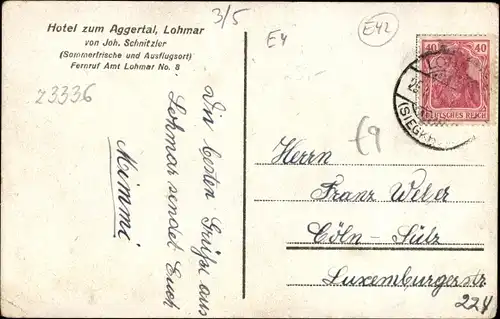 Hotel zum Aggertal, Lohmar
von Joh. Schnitzler
(Sommerfrische und Ausflugsort)
Fernruf Amt Lohmar No. 8
3/5
E4
E42
23336
E9
40 40
DEUTSCHES REICH
(SIEGKR
Die besten Grüße aus
Lohmar sendet Euch
Mimmi
Herrn
Franz Weber
Cöln-Sülz
Luxemburgerstr
224